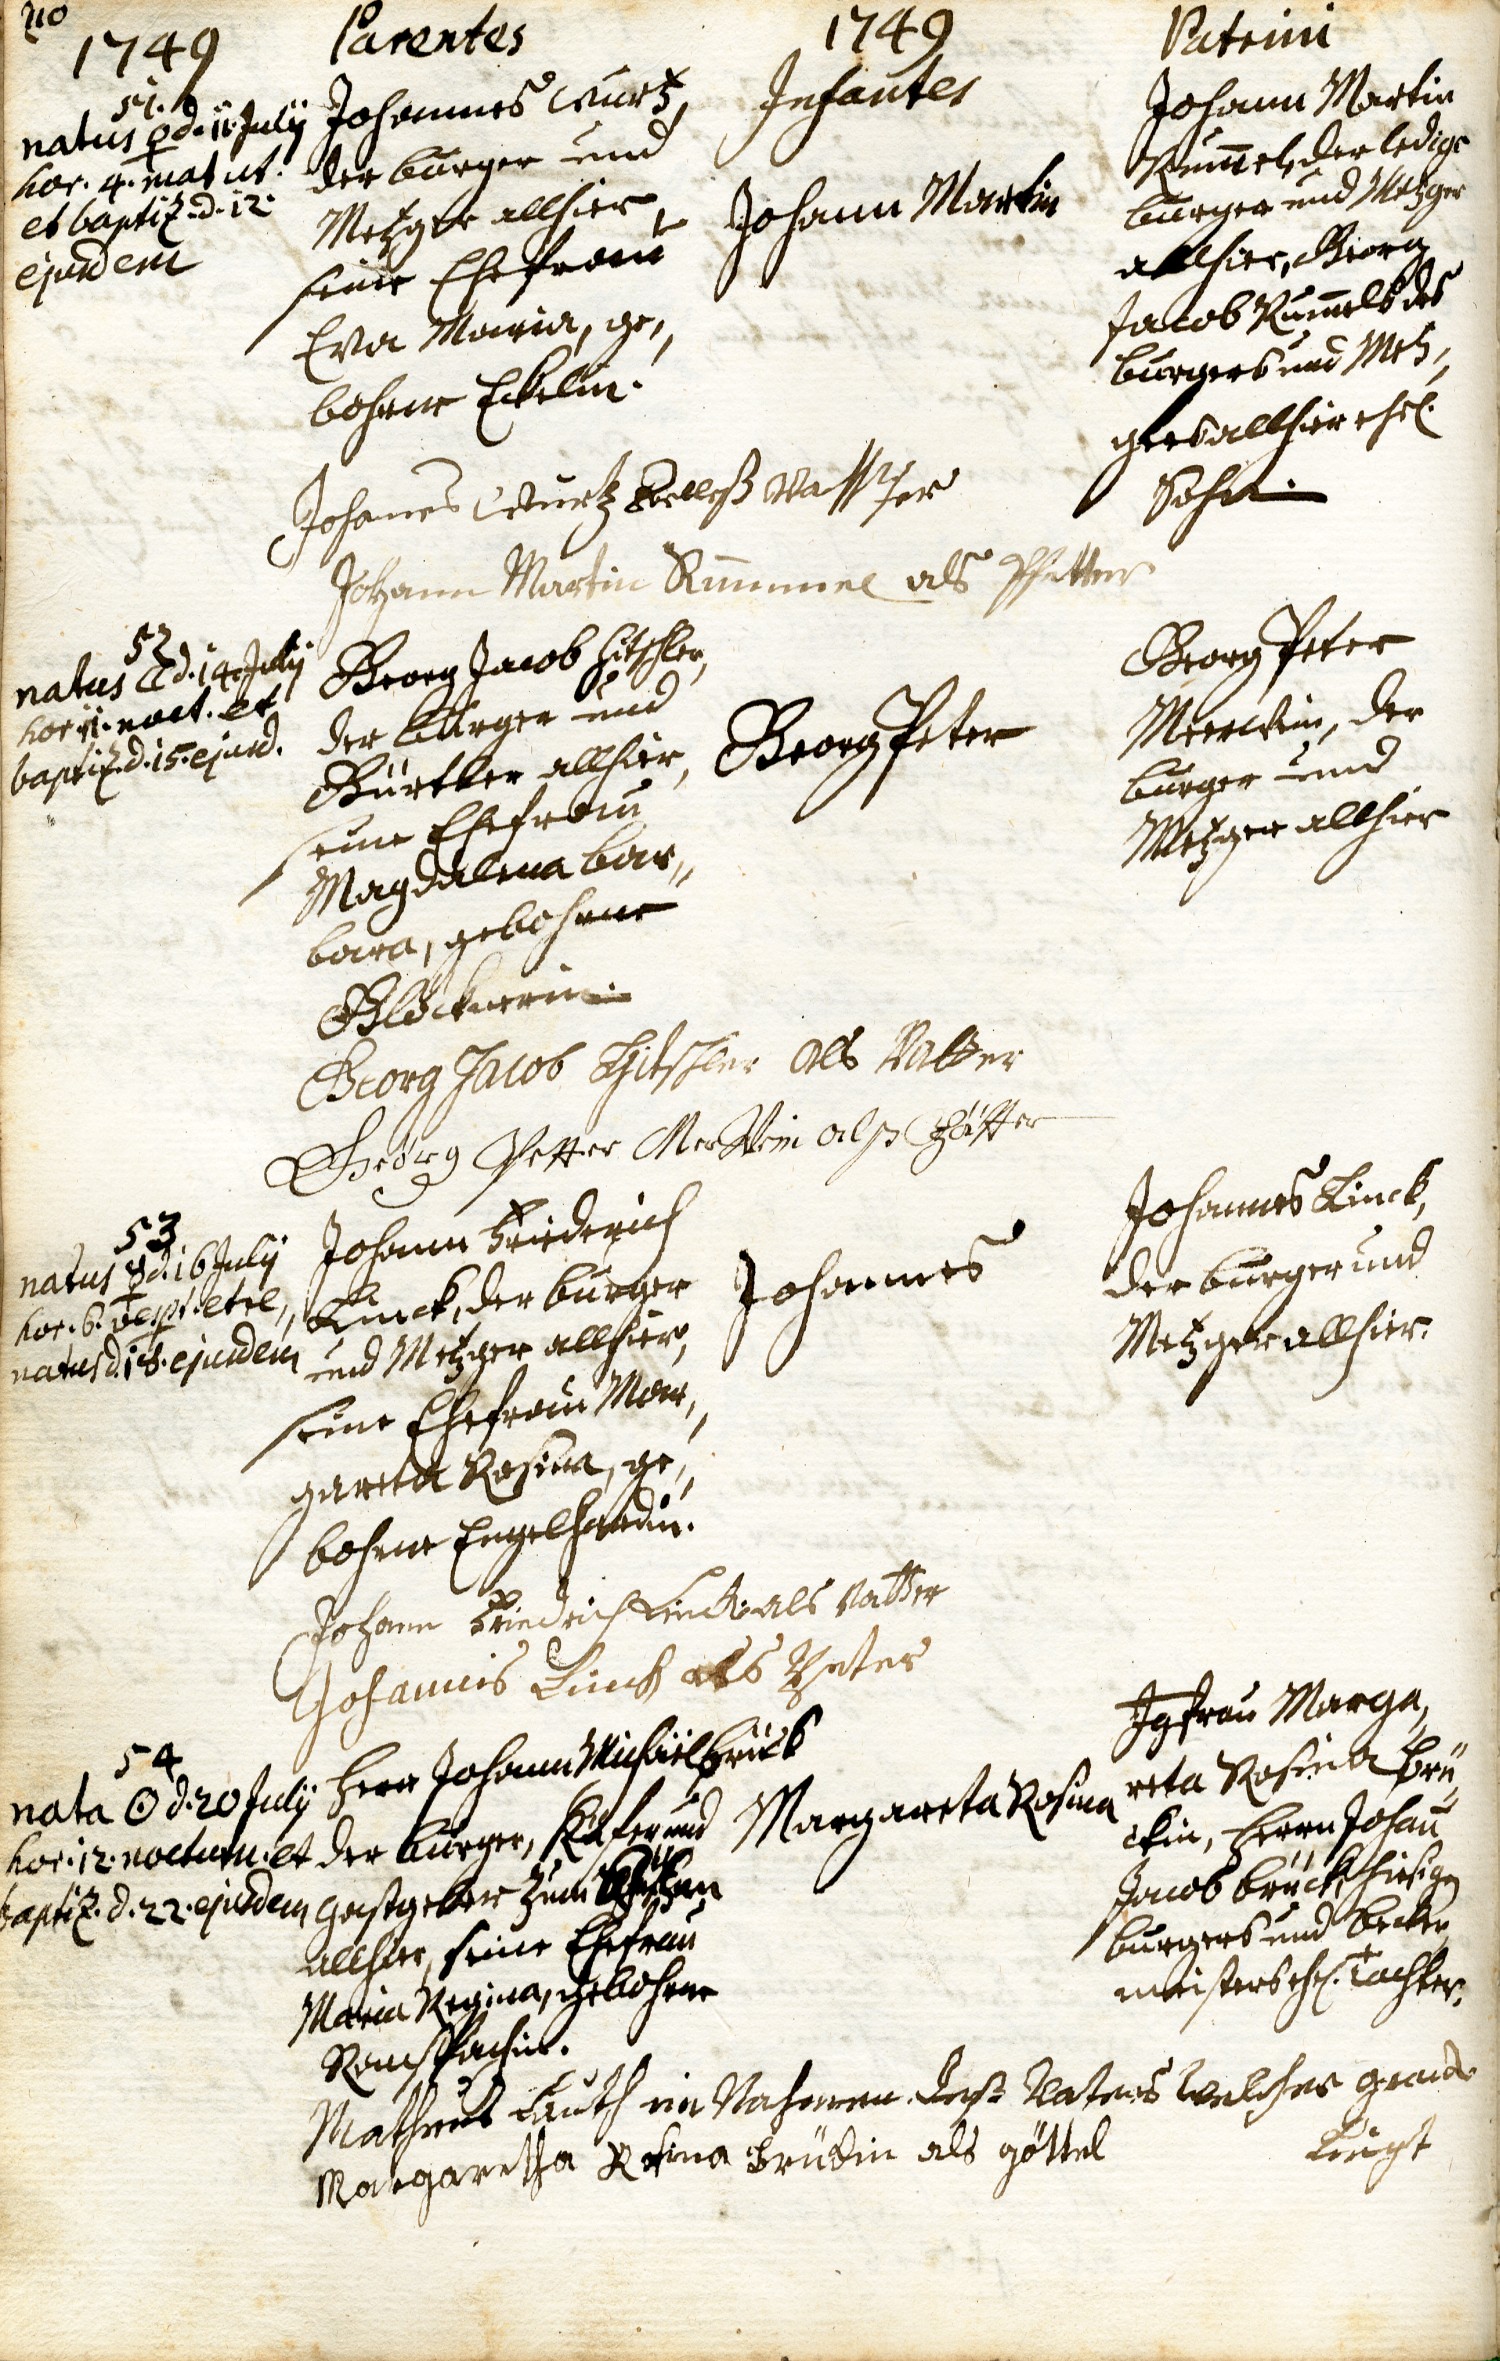 210
1749
Parentes
1749
Infantes
Patrini
51.
natus ♀ d. 11. July
hor. 4. matut.
et baptiz. d. 12.
ejusdem
Johannes Wurtz,
der burger und
Metzger allhier,
seine Ehefrau
Eva Maria, ge„
bohrne Eckelin.
Johann Martin
Johann Martin
Rum̄el, der ledige
burger und Metzger
allhier, Georg
Jacob Rum̄els des
burgers und Metz„
gers allhier ehel.
Sohn.
Johanes Wurtz Vatter
Johann Martin Rummel als Pfetter
52
natus ☾ d. 14. July
hor. 11. noct. et
baptiz. d. 15. ejusd.
Georg Jacob Hitschler,
der burger und
Gürtler allhier,
seine Ehefrau
Magdalena bar„
bara, gebohrne
Glöcknerin.
Georg Peter
Georg Peter
Meerwein, der
burger und
Metzger allhier
Georg Jacob Hitschler als Vatter
Georg Petter Merwein alß Pfätter
53
natus ☿ d. 16 July
hor. 6. vesp. et re„
natus d. 18. ejusdem
Johann Friederich
Linck, der burger
und Metzger allhier,
seine Ehefrau Mar„
gareta Rosina, ge„
bohrne Engelhardin.
Johannes
Johannes Linck,
der burger und
Metzger allhier.
Johann Friedrich Linck als Vatter
Johannis Linck als
54
nata ☉ d. 20 July
hor. 12. nocturn. et
baptiz. d. 22. ejusdem
Herr Johann Michael brück
der burger, Küfer und
gastgeber zum
allhier, seine Ehefrau
Maria Regina, gebohrne
Ramspachin.
Margareta Rosina
Jgfrau Marga„
reta Rosina brü„
ckin, Herrn Johan̄
Jacob brück, hiesigen
burgers und becker„
meisters ehel. Tochter.
Matheus Lauth im Nahmen deß Vaters welcher kranck
liegt
Margaretha Rosina Brückin als göttel